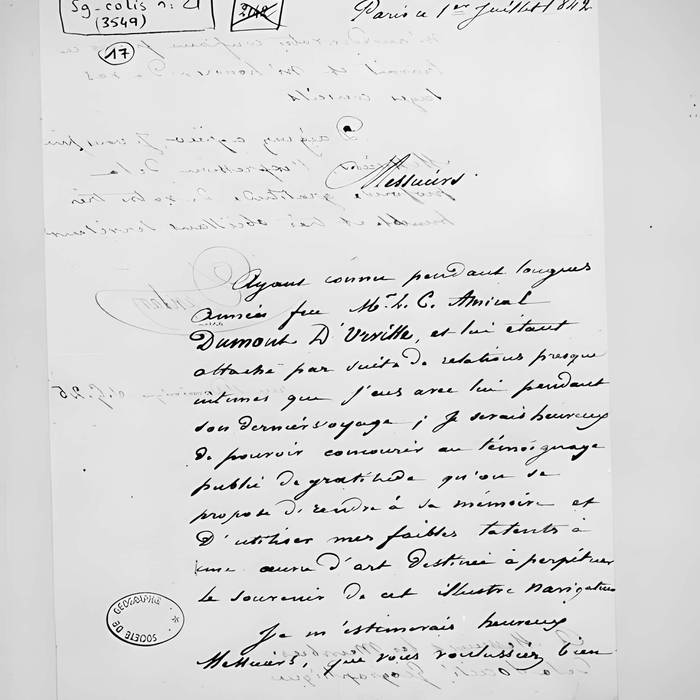 Sg-colis n: 21
(3549)
2142
17
Paris ce 1er Juillet 1842
Messieurs
Ayant connu pendant longues
années feu Mr. le C. Amiral
Dumont D'Urville, et lui étant
attaché par suite de relations presque
intimes que j'eus avec lui pendant
son dernier voyage ; Je serais heureux
de pouvoir concourir au témoignage
public de gratitude qu'on se
propose de rendre à sa mémoire et
D'utiliser mes faibles talents à
une œuvre d'art destinée à perpétuer
le souvenir de cet illustre navigateur
Je m'estimerais heureux
Messieurs, que vous voulussiez bien
SOCIÉTÉ DE GÉOGRAPHIE